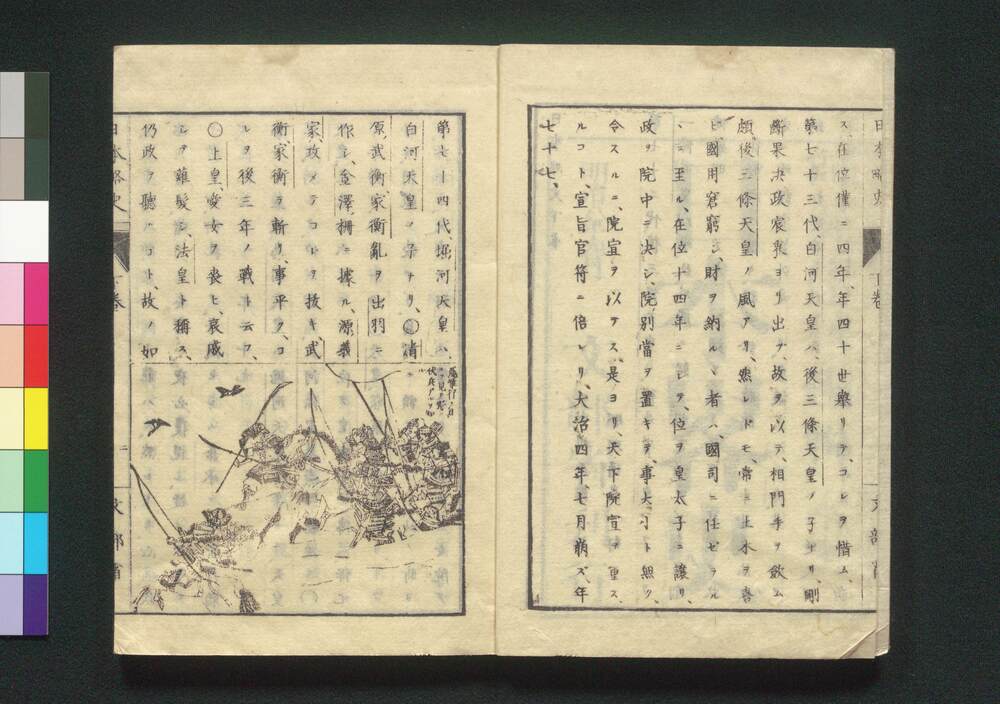 ス、在位僅ニ四年、年四十世擧リテ、コレヲ惜ム、
第七十三代、白河天皇ハ、後三條天皇ノ子ナリ、剛
斷果決政宸衷ヨリ出ヅ、故ヲ以テ、相門手ヲ歛ム
頗後三條天皇ノ風アリ、然レドモ、常ニ土木ヲ喜
ビ國用窘窮シ、財ヲ納ルヽ者ハ、國司ニ任ゼラル
ヽニ至ル、在位十四年ニシテ、位ヲ皇太子ニ讓リ、
政ヲ院中ニ決シ、院別當ヲ置キテ、事大小ト無ク、
令スルニ、院宣ヲ以テス、是ヨリ、天下院宣ヲ重ス
ルコト、宣旨官符ニ倍レリ、大治四年、七月崩ズ、年
七十七、
日本略史
下卷
文部省
第七十四代、堀河天皇ハ、
白河天皇ノ子ナリ、〇清
原武衡、家衡亂ヲ出羽ニ
作シ、金澤ノ柵ニ據ル、源義
家、攻メテコレヲ抜キ、武
衡家衡ヲ斬リ、事平ラク、コ
レヲ後三年ノ戰ト云フ、
〇上皇、愛女ヲ喪ヒ、哀感
シテ、薙髮シ、法皇ト稱ス、
仍政ヲ聽クコト、故ノ如
日本略史
下卷
文部省